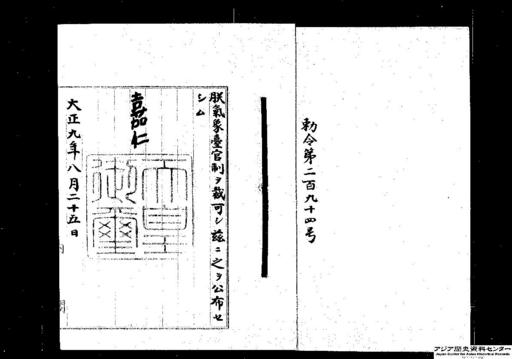 勅令第二百九十四号
朕氣象臺官制ヲ裁可シ茲ニ之ヲ公布セ
シム
嘉仁
天皇
御璽
大正九年八月二十五日
アジア歴史資料センター
Japan Center for Asian Historical Records